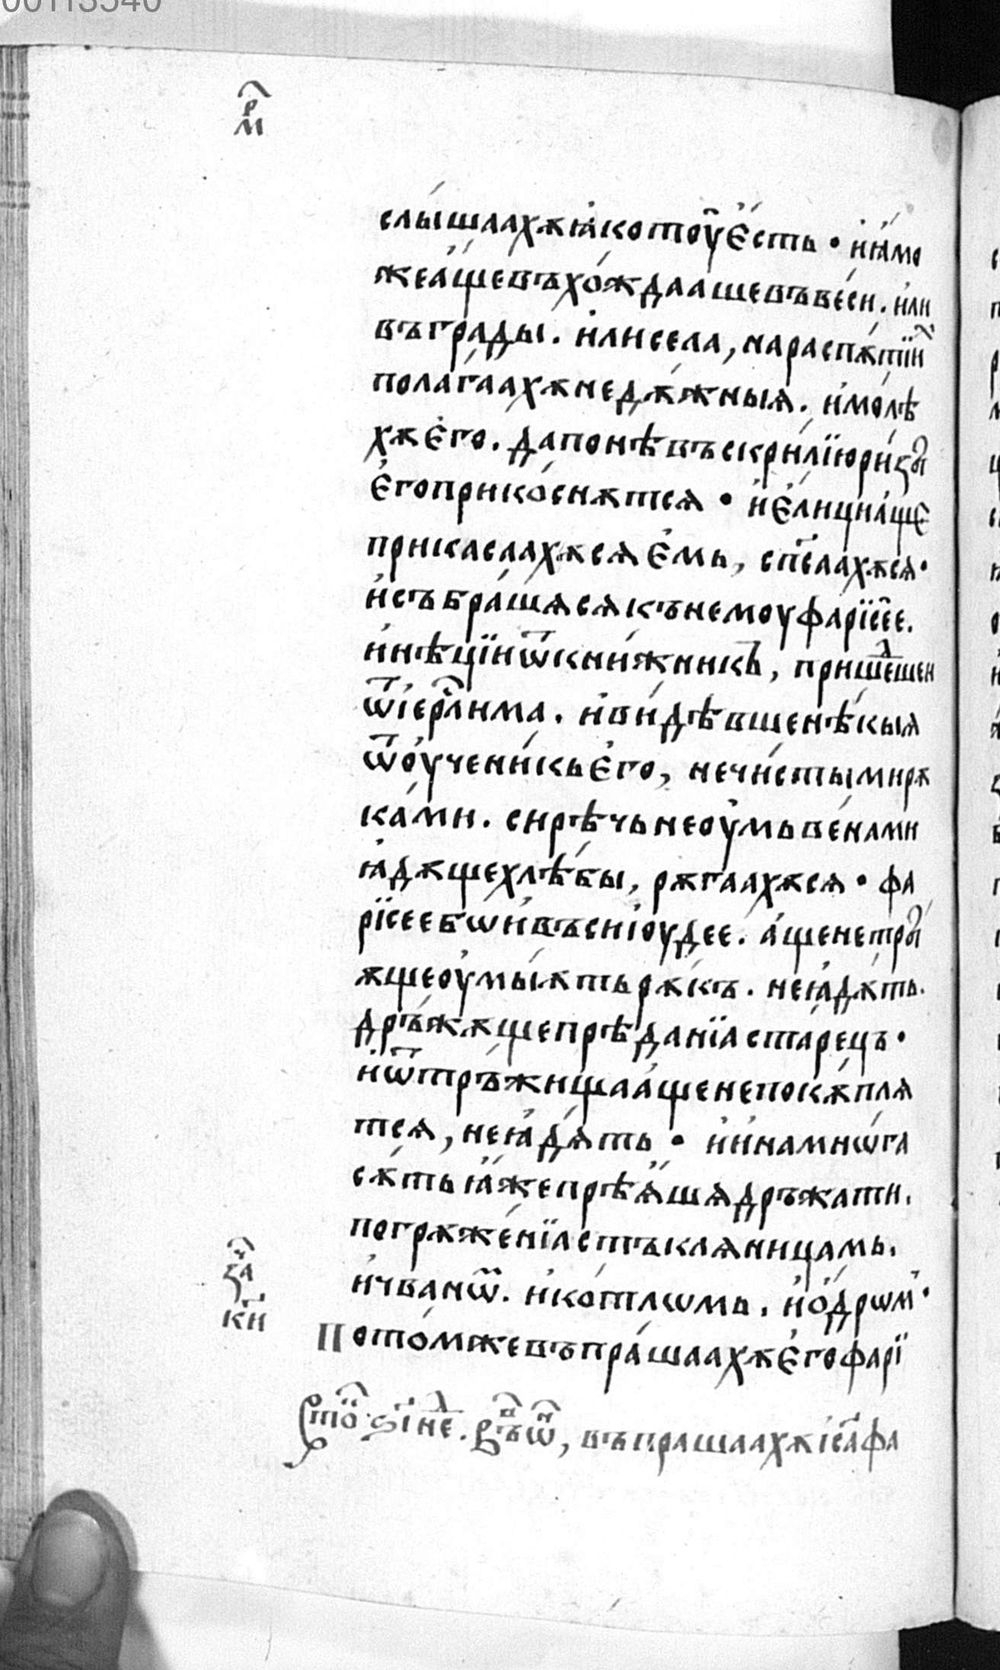 00113540
р҃м
слы́шаахѫ ꙗ҆ко тоу̑ є҆сть · и҆ ꙗ҆мо
же а҆ще въхо́ждааше въ ве́си . и҆ли
въ гра́ды . и҆ли села , на распѫ́тїи
пола́гаахѫ недѫ́жныѧ . и҆ мо́лѣ
хѫ є҆го . да понѣ въскри́лїю ри́зы
є҆го прико́снѫтсѧ · и҆ є҆ли́ци а҆ще
прикасаахѫсѧ є҆мь , сп҃саахѫсѧ ·
и҆ събра́шѧсѧ къ немоу фарїсе́е .
и҆ нѣ́цїи ѿ кни́жникь , прише́дшеи
ѿ і҆ерⷭ҇лима . и҆ ви́дѣвше нѣ́кыѧ
ѿ оу҆чени́кь є҆го , нечи́стыми рѫ
ка́ми . сирѣ́чь неоу҆мьве́нами
ꙗ҆дѫ́ще хлѣ́бы , рѫга́ахѫсѧ · фа
рїсее бѡ и҆ въси і҆оуде́е . а҆ще не тры́
ѫще оу҆мы́ѫть рѫ́къ . не ꙗ҆дѫ́ть .
дръ́жѫще прѣда́нїа ста́рець ·
и҆ ѿ тръ́жища а҆ще не покѫ́плѧ
тсѧ , не ꙗ҆дѧ́ть · и҆ и҆на мнѡ́га
сѫ́ть ꙗ҆́же прѣѧ́шѧ дръжати .
погрѫже́нїа стъклѧни́цамь .
и҆ чва́нѡⷨ . и҆ ко́тлѡмь . и҆ ѻ҆́дрѡмⸯ ·
за҃ч к҃и
Пото́мже въпра́шаахѫ є҆го фарї
сто̑ · ѕ҃і неⷣ . въ ѡ҆н , въпрашаахѫ і҆са фа